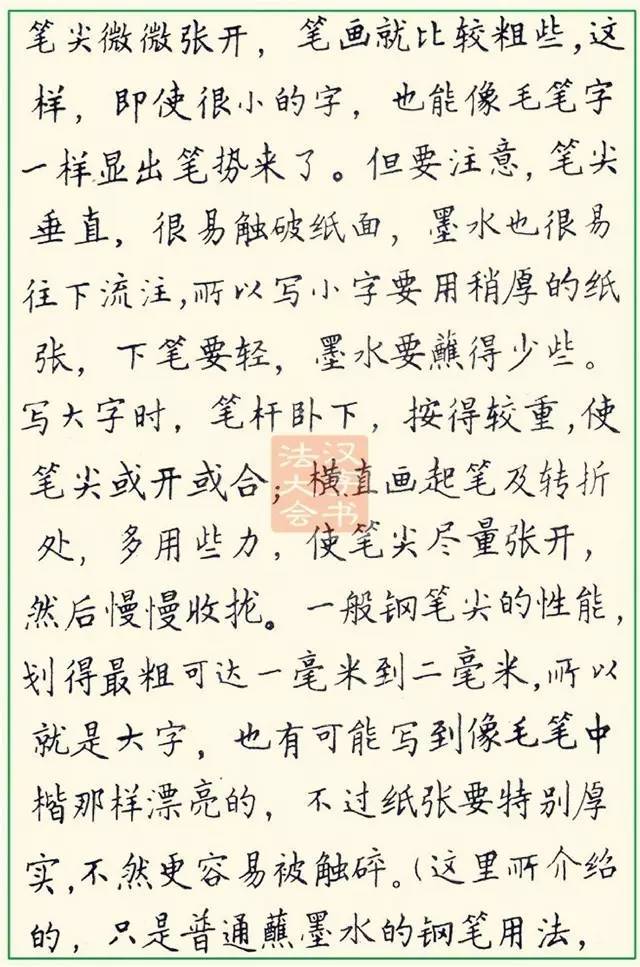 笔尖微微张开，笔画就比较粗些，这
样，即使很小的字，也能像毛笔字
一样显出笔势来了。但要注意，笔尖
垂直，很易触破纸面，墨水也很易
往下流注，所以写小字要用稍厚的纸
张，下笔要轻，墨水要蘸得少些。
写大字时，笔杆卧下，按得较重，使
笔尖或开或合；横直画起笔及转折
处，多用些力，使笔尖尽量张开，
然后慢慢收拢。一般钢笔尖的性能，
划得最粗可达一毫米到二毫米，所以
就是大字，也有可能写到像毛笔中
楷那样漂亮的，不过纸张要特别厚
实，不然更容易被触碎。（这里所介绍
的，只是普通蘸墨水的钢笔用法，
汉字书
法大会